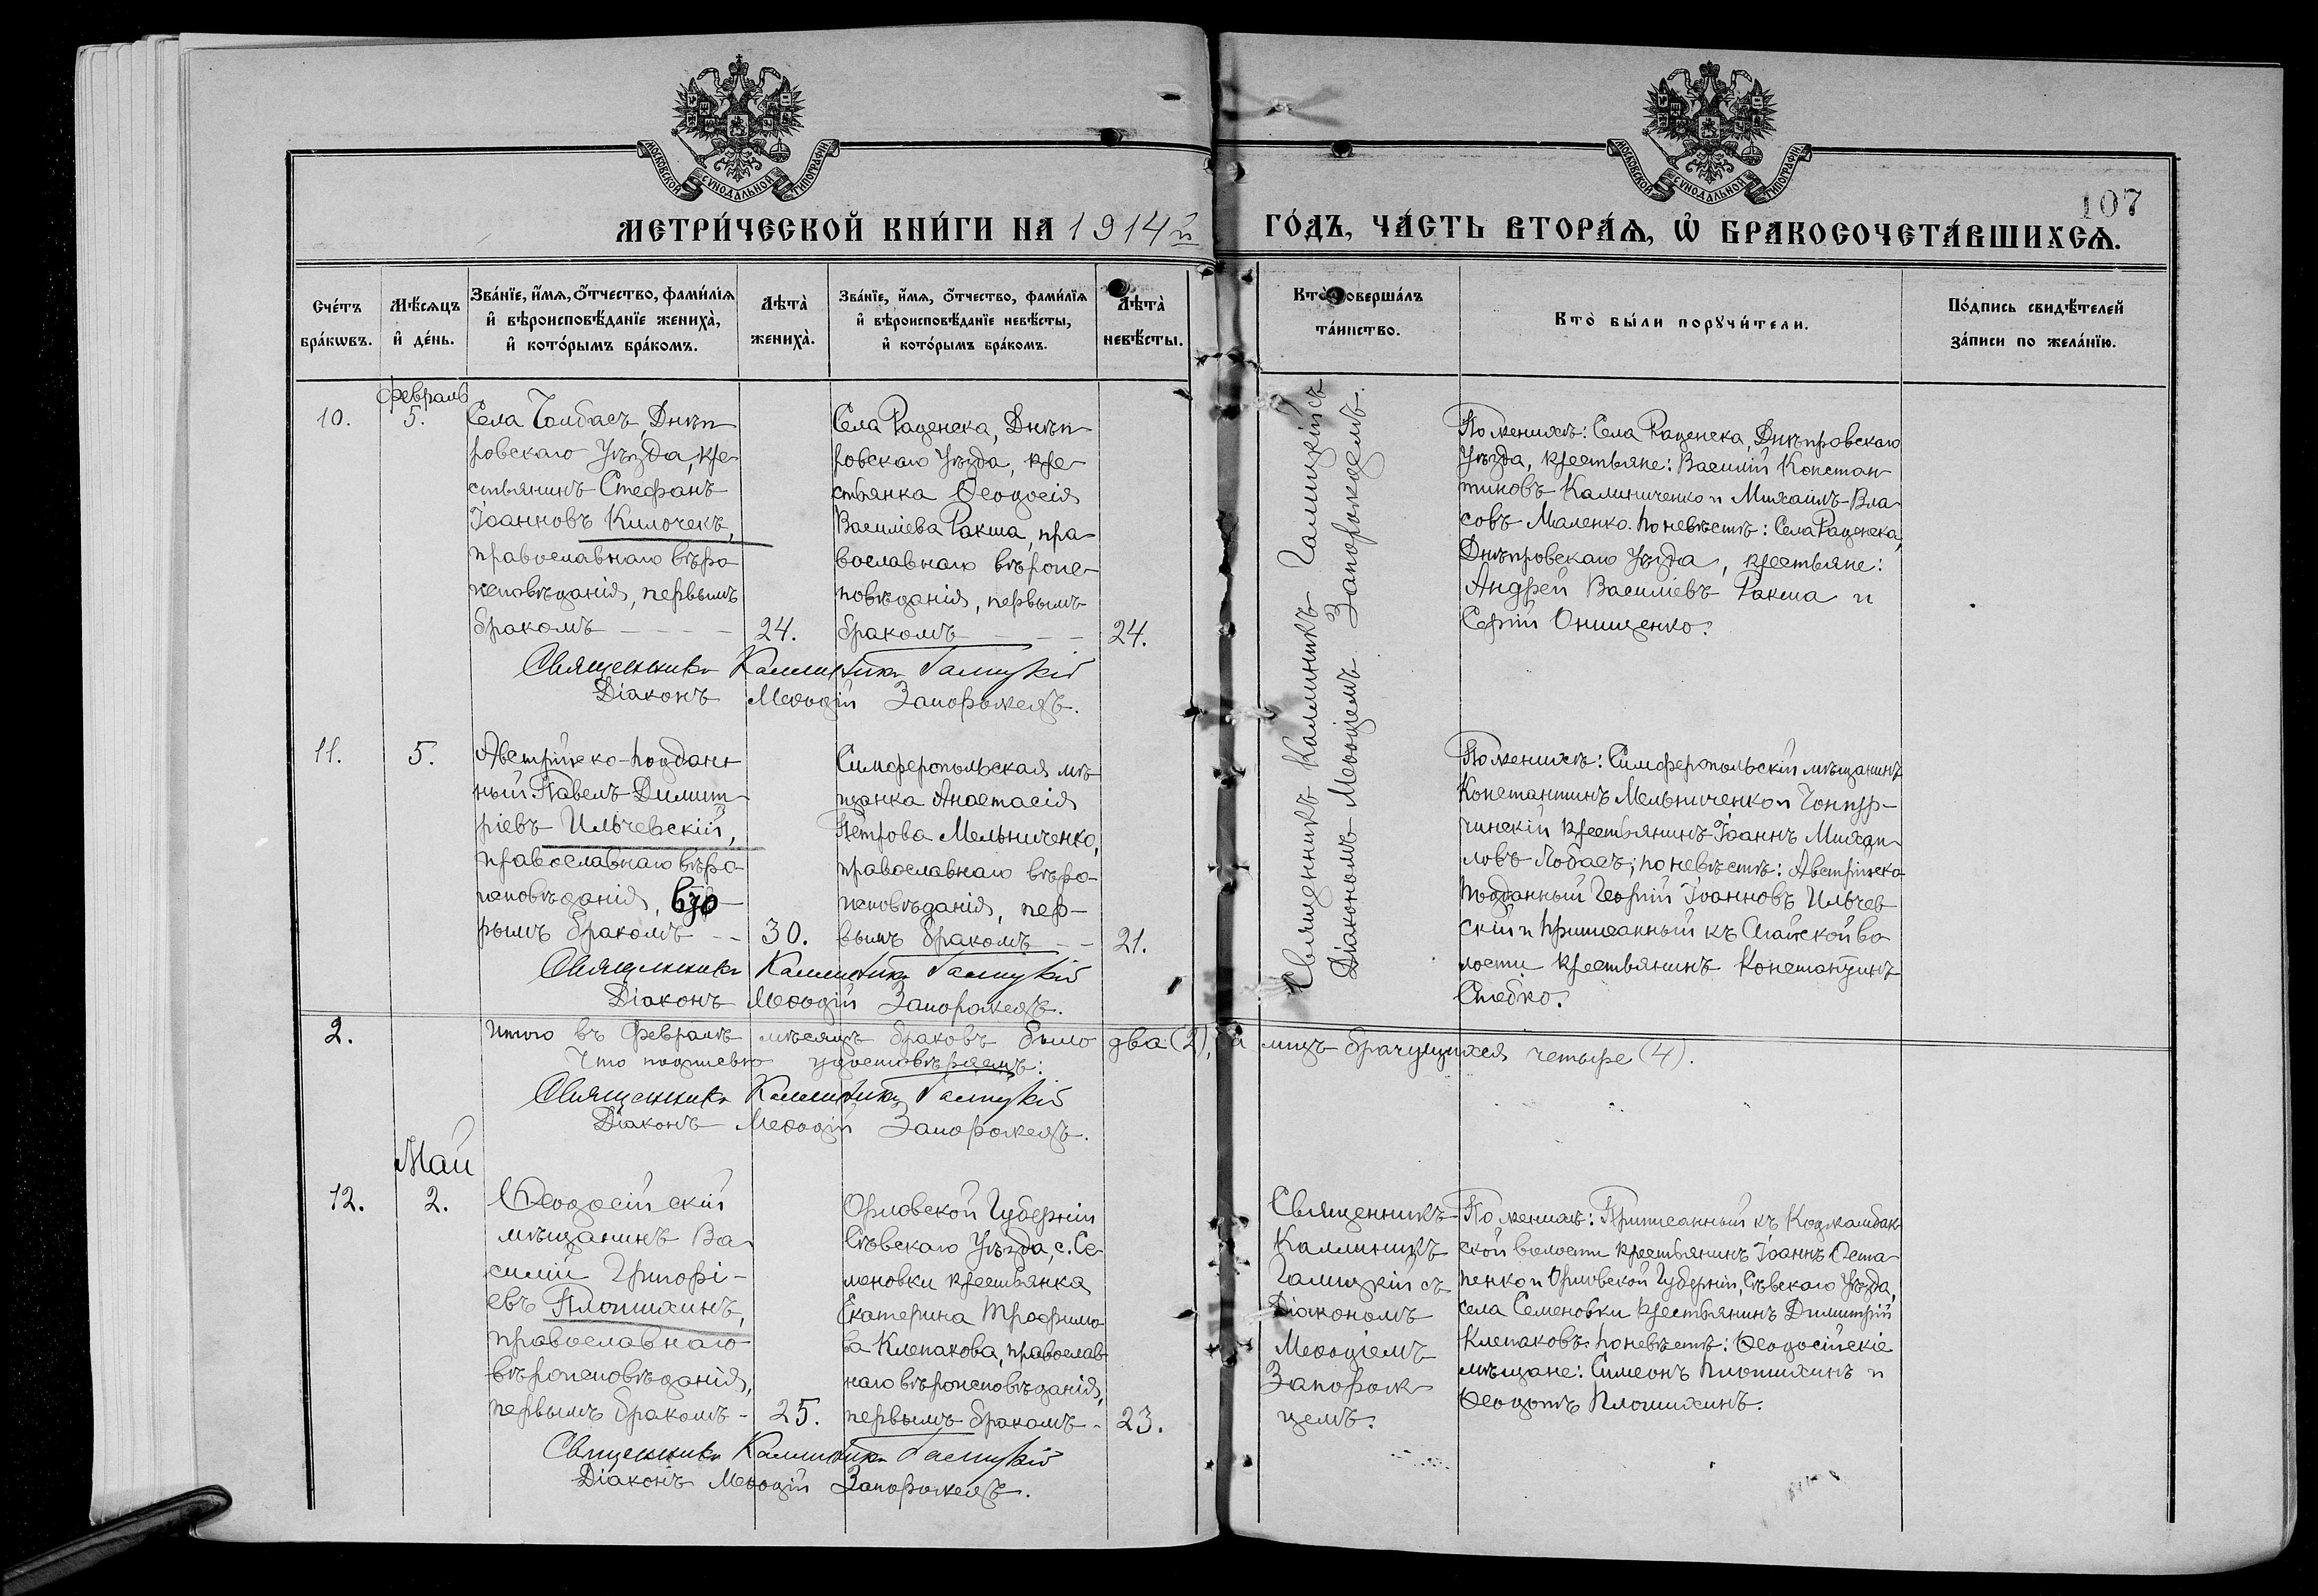 МОСКОВСКОЙ СУНОДАЛЬНОЙ ТИПОГРАФІИ
МОСКОВСКОЙ СУНОДАЛЬНОЙ ТИПОГРАФІИ
107
МЕТРИ́ЧЕСКОЙ КНИ́ГИ НА 1914й ГО́ДЪ, ЧА́СТЬ ВТОРА́Ѧ, Ѽ БРАКОСОЧЕТА́ВШИХСѦ.
Сче́тъ бра́кѡвъ.
Мѣ́сяцъ и҆ де́нь.
Зва́нїе, и҆́мѧ, ѻ҆́тчество, фами́лїѧ
и҆ вѣроисповѣ́данїе жениха̀,
и҆ кото́рымъ бра́комъ.
Лѣта̀ жениха̀.
Зва́нїе, и҆́мѧ, ѻ҆́тчество, фами́лїѧ
и҆ вѣроисповѣ́данїе невѣ́сты,
и҆ кото́рымъ бра́комъ.
Лѣта̀ невѣ́сты.
Кто̀ соверша́лъ
та́инство.
Кто̀ бы́ли порꙋчи́тели.
По́дпись свидѣ́телей
за́писи по жела́нїю.
Февраль
10.
5.
Села Чолбасъ, Днѣп
ровскаго Уѣзда, кре-
стьянинъ Стефанъ
Іоанновъ Килочекъ,
православнаго вѣро
исповѣданія, первымъ
бракомъ
24.
Села Раденска, Днѣп
ровскаго Уѣзда, кре-
стьянка Ѳеодосія
Василіева Ракша, пра-
вославнаго вѣроис-
повѣданія, первымъ
бракомъ
24.
Священникъ Каллиникъ Галицкій съ
Діакономъ Меѳодіемъ Запорожцемъ.
По женихѣ: Села Раденска, Днѣпровскаго
Уѣзда, крестьяне: Василій Констан
тиновъ Калиниченко и Михаилъ Вла-
совъ Маленко. По невѣстѣ: Села Раденска,
Днѣпровскаго Уѣзда, крестьяне:
Андрей Василіевъ Ракша и
Сергій Онищенко.
Священникъ Каллиникъ Галицкій
Діаконъ Меѳодій Запорожецъ.
11.
5.
Австрійско-поддан-
ный Павелъ Димит-
ріевъ Ильчевскій,
православнаго вѣро-
исповѣданія, вто-
рымъ бракомъ
30.
Симферопольская мѣ-
щанка Анастасія
Петрова Мельниченко,
православнаго вѣро-
исповѣданія, пер-
вымъ бракомъ
21.
По женихѣ: Симферопольскій мѣщанинъ
Константинъ Мельниченко и
крестьянинъ Іоаннъ Михаи-
ловъ Лобасъ; по невѣстѣ: Австрійско
подданный Георгій Іоанновъ Ильчев
скій и приписанный къ Агайской во
лости крестьянинъ Константинъ
Стебко.
Священникъ Каллиникъ Галицкій
Діаконъ Меѳодій Запорожецъ.
2.
Итого въ Февралѣ мѣсяцѣ браковъ было два (2), а лицъ брачущихся четыре (4).
Что подписью удостовѣряемъ:
Священникъ Каллиникъ Галицкій
Діаконъ Меѳодій Запорожецъ.
Май
12.
2.
Ѳеодосійскій
мѣщанинъ Ва-
силій Григорі-
евъ Плотихинъ,
православнаго
вѣроисповѣданія,
первымъ бракомъ
25.
Орловской Губерніи
Сѣвскаго Уѣзда, с. Се-
меновки крестьянка
Екатерина Трофимо
ва Клепакова, православ-
наго вѣроисповѣданія,
первымъ бракомъ
23.
Священникъ
Каллиникъ
Галицкій съ
Діакономъ
Меѳодіемъ
Запорож
цемъ.
По женихѣ: Приписанный къ Коджамбак
ской волости крестьянинъ Іоаннъ Оста-
пенко и Орловской Губерніи, Сѣвскаго Уѣзда,
села Семеновки крестьянинъ Димитрій
Клепаковъ. По невѣстѣ: Ѳеодосійскіе
мѣщане: Симеонъ Плотихинъ и
Ѳеодотъ Плотихинъ.
Священникъ Каллиникъ Галицкій
Діаконъ Меѳодій Запорожецъ.